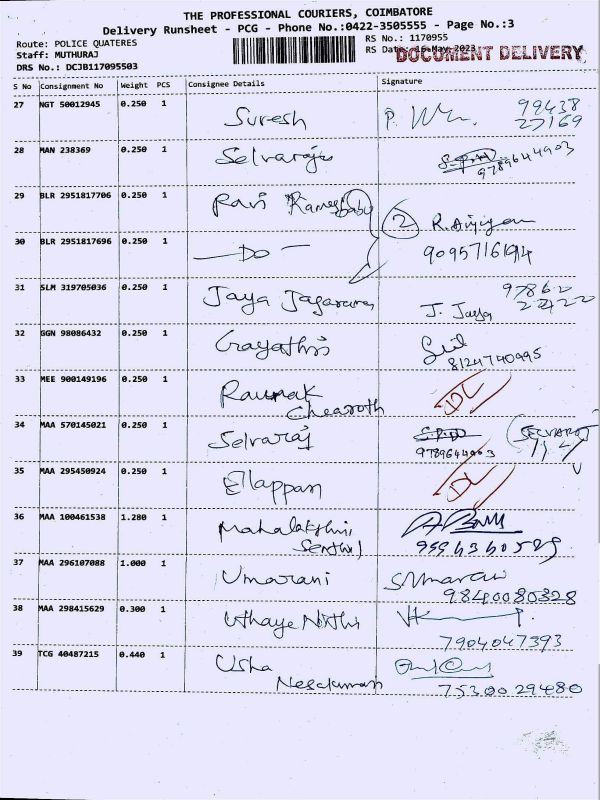 THE PROFESSIONAL COURIERS, COIMBATORE
Delivery Runsheet - PCG - Phone No.:0422-3505555 - Page No.:3
Route: POLICE QUATERES
RS No.: 1170955
Staff: MUTHURAJ
RS Date: 16-May-2023
DOCUMENT DELIVERY
DRS No.: DCJB117095503
S No Consignment No Weight PCS Consignee Details Signature
27 NGT 50012945 0.250 1 Suresh P. 99438
27169
28 MAN 238369 0.250 1 Selvaraju
9789644903
29 BLR 2951817706 0.250 1 Ravi Rameshbabu 2
30 BLR 2951817696 0.250 1 —DO—
31 SLM 319705036 0.250 1 Jaya J. Jaya 97862
22422
32 GGN 98086432 0.250 1 Gayathri
8124740995
33 MEE 900149196 0.250 1 Raunak DL
34 MAA 570145021 0.250 1 Selvaraj
9789644903
35 MAA 295450924 0.250 1 Ellappan DL
36 MAA 100461538 1.280 1 Mahalakshmi
Senthil
37 MAA 296107088 1.000 1 Umarani
9840080328
38 MAA 298415629 0.300 1 Uthaye Nithi
7904047393
39 TCG 40487215 0.440 1 Usha
Nesakumari 7530029480